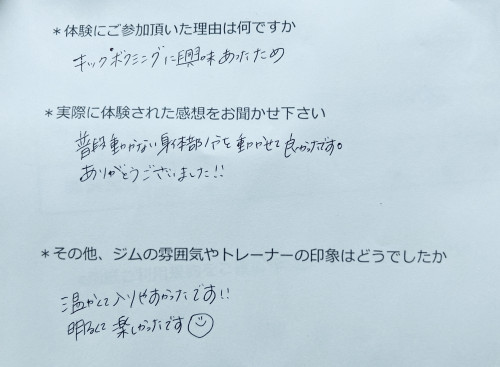 ＊体験にご参加頂いた理由は何ですか
キックボクミングに興味あったため
＊実際に体験された感想をお聞かせ下さい
普段動かない身体部分を動かせて良かったです。
ありがとうございました!!
＊その他、ジムの雰囲気やトレーナーの印象はどうでしたか
温かくて入りやすかったです!!
明るくて楽しかったです